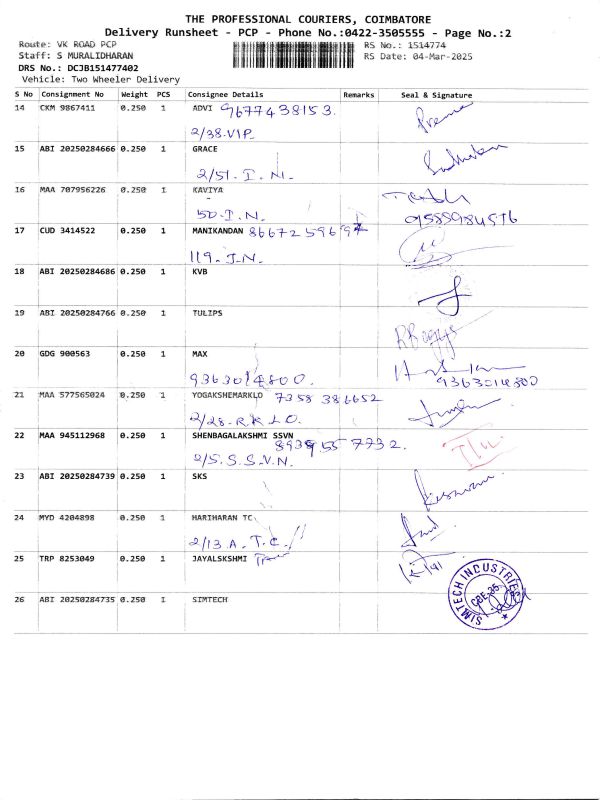 THE PROFESSIONAL COURIERS, COIMBATORE
Delivery Runsheet - PCP - Phone No.:0422-3505555 - Page No.:2
Route: VK ROAD PCP RS No.: 1514774
Staff: S MURALIDHARAN RS Date: 04-Mar-2025
DRS No.: DCJB151477402
Vehicle: Two Wheeler Delivery
S No Consignment No Weight PCS Consignee Details Remarks Seal & Signature
14 CKM 9867411 0.250 1 ADVI 9677438153. Prema
2/38.VIP.
15 ABI 20250284666 0.250 1 GRACE
2/51. I. N.
16 MAA 707956226 0.250 1 KAVIYA
50. I. N.
17 CUD 3414522 0.250 1 MANIKANDAN
119. I.N.
18 ABI 20250284686 0.250 1 KVB
19 ABI 20250284766 0.250 1 TULIPS
20 GDG 900563 0.250 1 MAX
9363014800. 9363014800
21 MAA 577565024 0.250 1 YOGAKSHEMARKLO 7358 386652
2/28. R.K.L.O.
22 MAA 945112968 0.250 1 SHENBAGALAKSHMI SSVN
893955 7732.
2/5. S.S.V.N.
23 ABI 20250284739 0.250 1 SKS
24 MYD 4204898 0.250 1 HARIHARAN TC
2/13 A. T.C.
25 TRP 8253049 0.250 1 JAYALSKSHMI
26 ABI 20250284735 0.250 1 SIMTECH
SIMTECH INDUSTRIES
CBE-35.